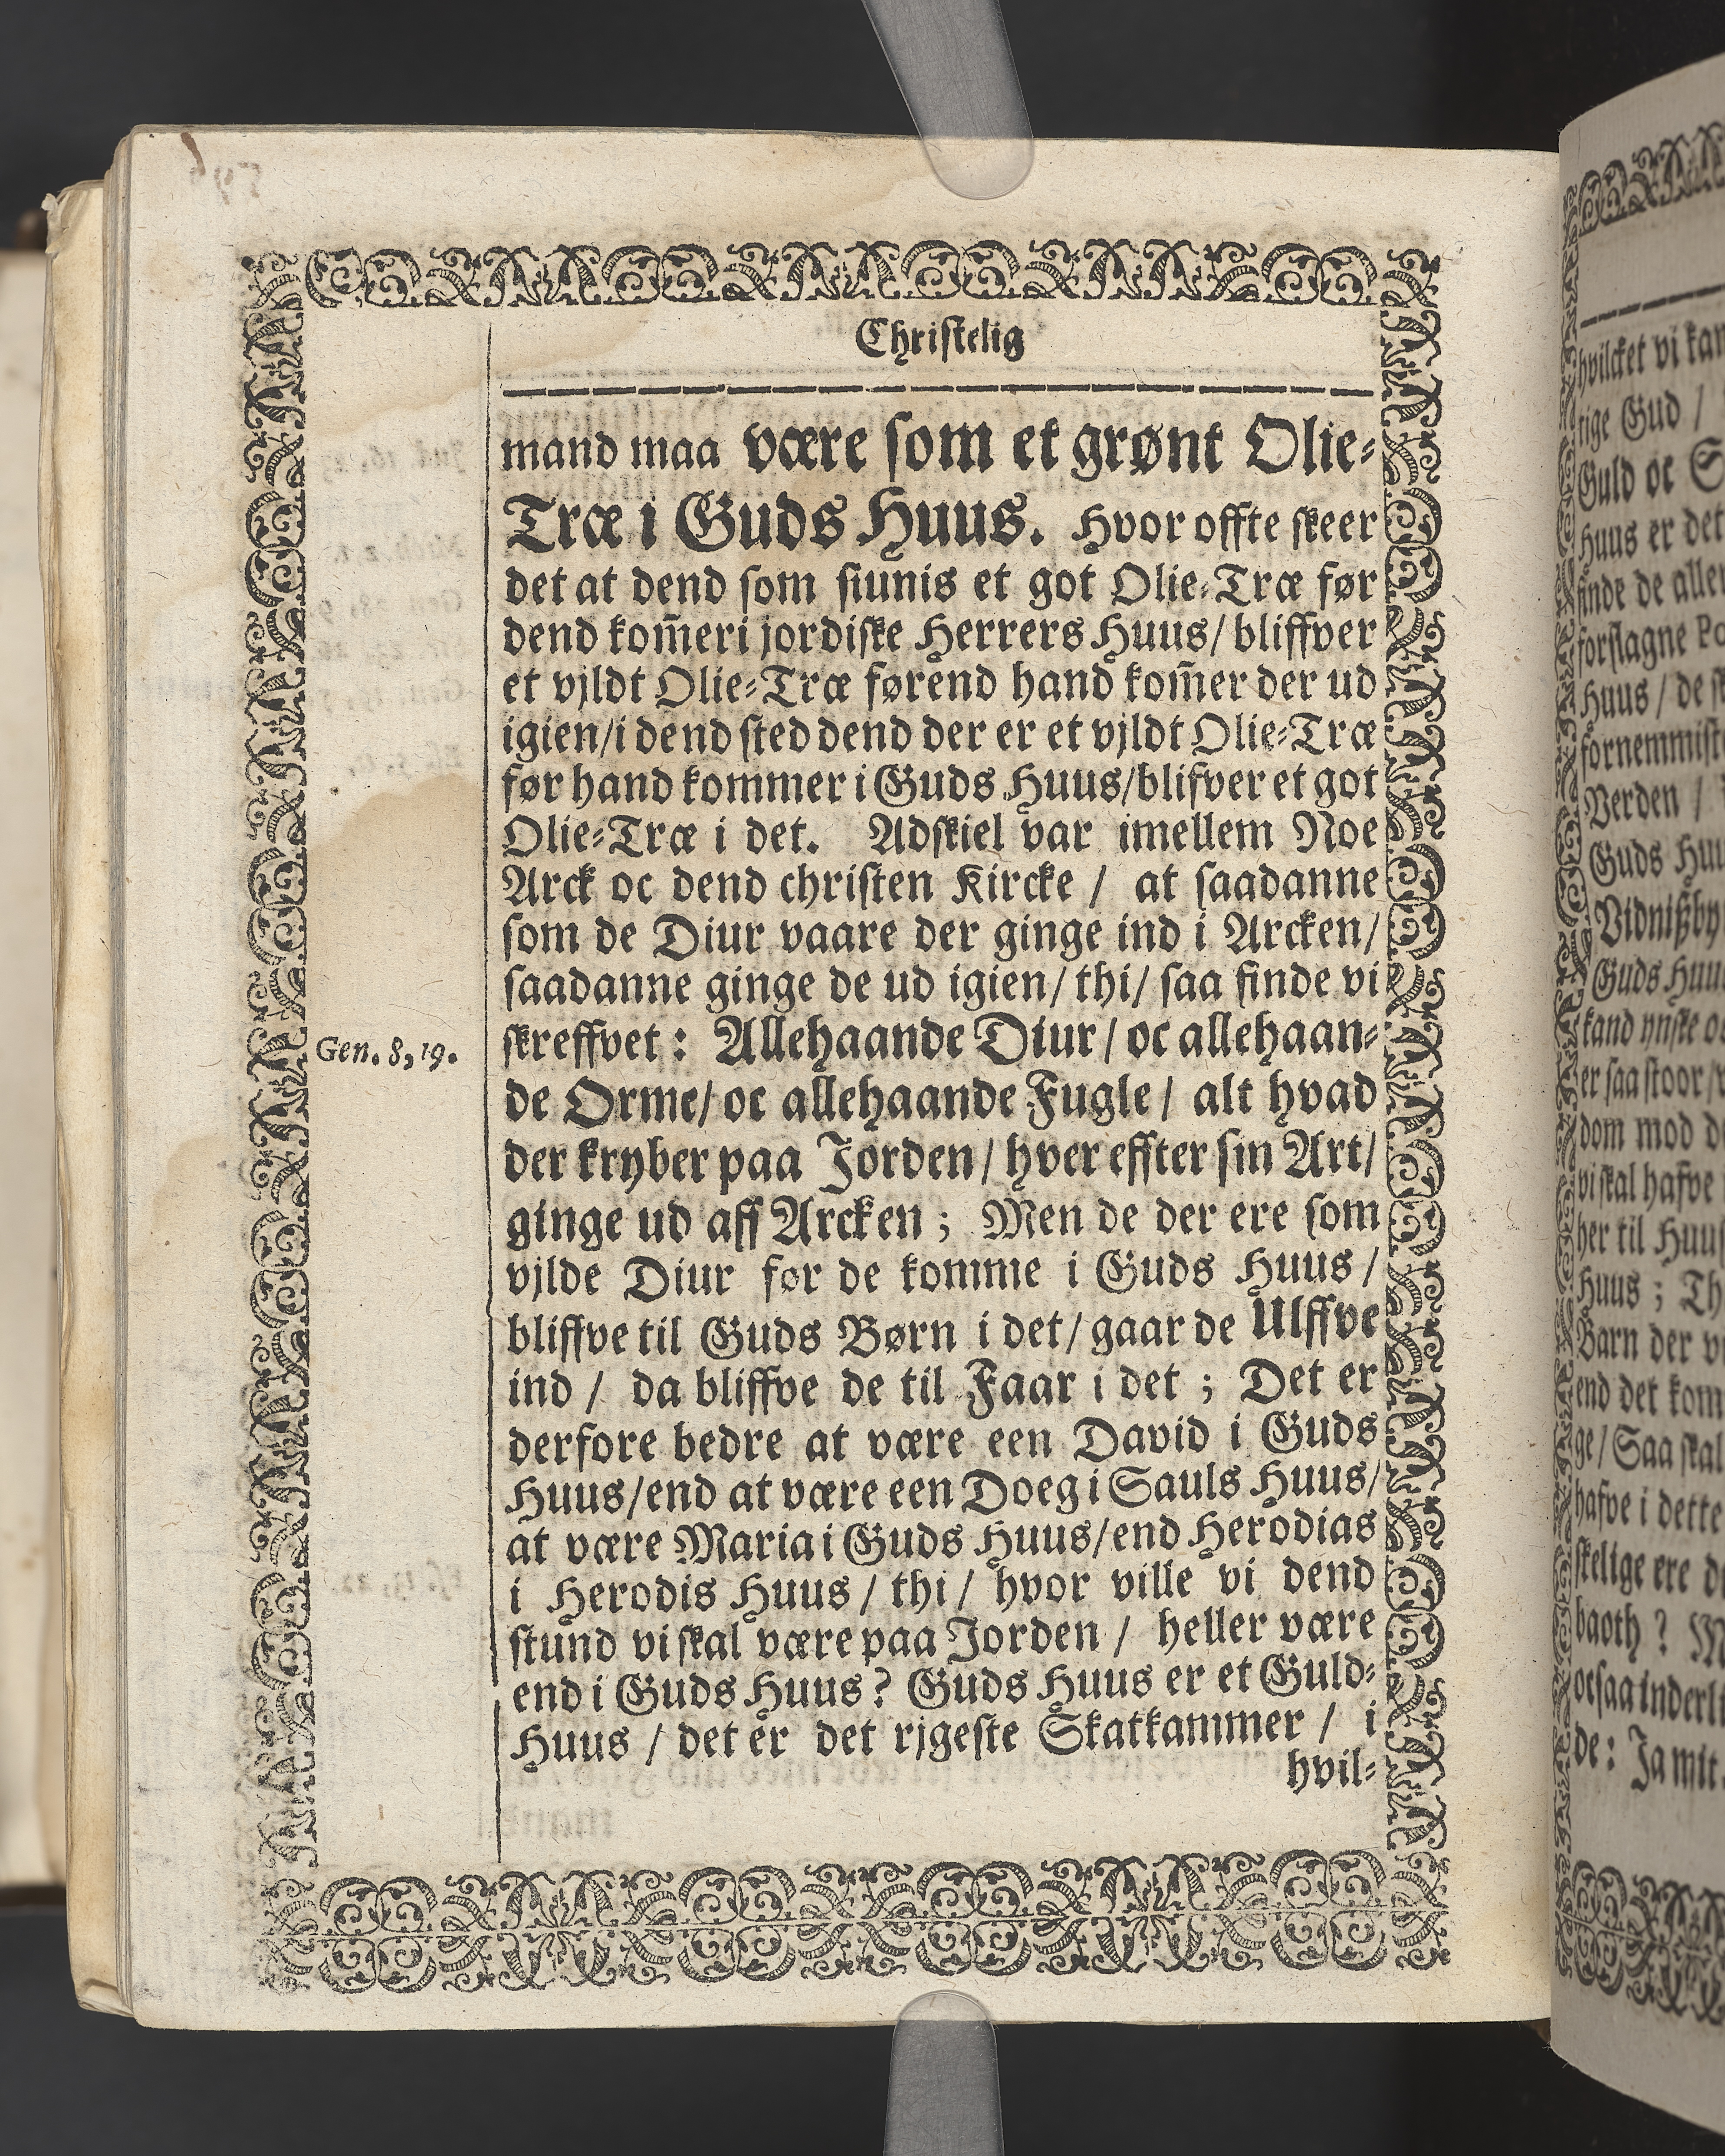 Christelig
mand maa være som et grønt Olie-
Træ i Guds Huus. Hvor offte skeer
det at dend som siunis et got Olie-Træ før
dend kom̃er i jordiske Herrers Huus/ bliffver
et vjldt Olie-Træ førend hand kom̃er der ud
igien/ i dend sted dend der er et vjldt Olie-Træ
før hand kommer i Guds Huus/ blifver et got
Olie-Træ i det. Adskiel var imellem Noe
Arck oc dend christen Kircke / at saadanne
som de Diur vaare der ginge ind i Arcken/
saadanne ginge de ud igien/ thi/ saa finde vi
Gen. 8, 19.
skreffvet : Allehaande Diur/ oc allehaan-
de Orme/ oc allehaande Fugle / alt hvad
der kryber paa Jorden / hver effter sin Art/
ginge ud aff Arcken ; Men de der ere som
vjlde Diur før de komme i Guds Huus /
bliffve til Guds Børn i det/ gaar de Ulffve
ind / da bliffve de til Faar i det ; Det er
derfore bedre at være een David i Guds
Huus/ end at være een Doeg i Sauls Huus/
at være Maria i Guds Huus/ end Herodias
i Herodis Huus / thi / hvor ville vi dend
stund vi skal være paa Jorden / heller være
end i Guds Huus? Guds Huus er et Guld-
Huus / det er det rjgeste Skatkammer / i
hvil-
hvilcket vi
Guds
Guld oc
Huus er det
finde de
Huus / de
Verden /
Guds
Guds
kand ynske
er saa stoor/
dom mod
vi skal hafve
her til
Huus ; Th
Barn der
end det kom
ge/ Saa skal
hafve i dette
skelige ere
baoth ?
de: Ja mit